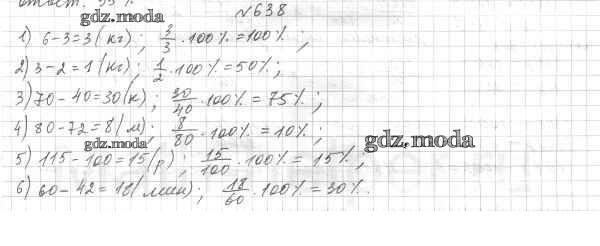 Ответ: 55 %.
gdz.moda
№638
1) 6-3=3(кг); 3/3 · 100% = 100% ;
2) 3-2=1(кг); 1/2 · 100% = 50% ;
3) 70-40=30(к); 30/40 · 100% = 75% ;
4) 80-72=8(м); 8/80 · 100% = 10% ;
gdz.moda
gdz.moda
5) 115-100=15(р); 15/100 · 100% = 15% ;
6) 60-42=18(мин); 18/60 · 100% = 30%.